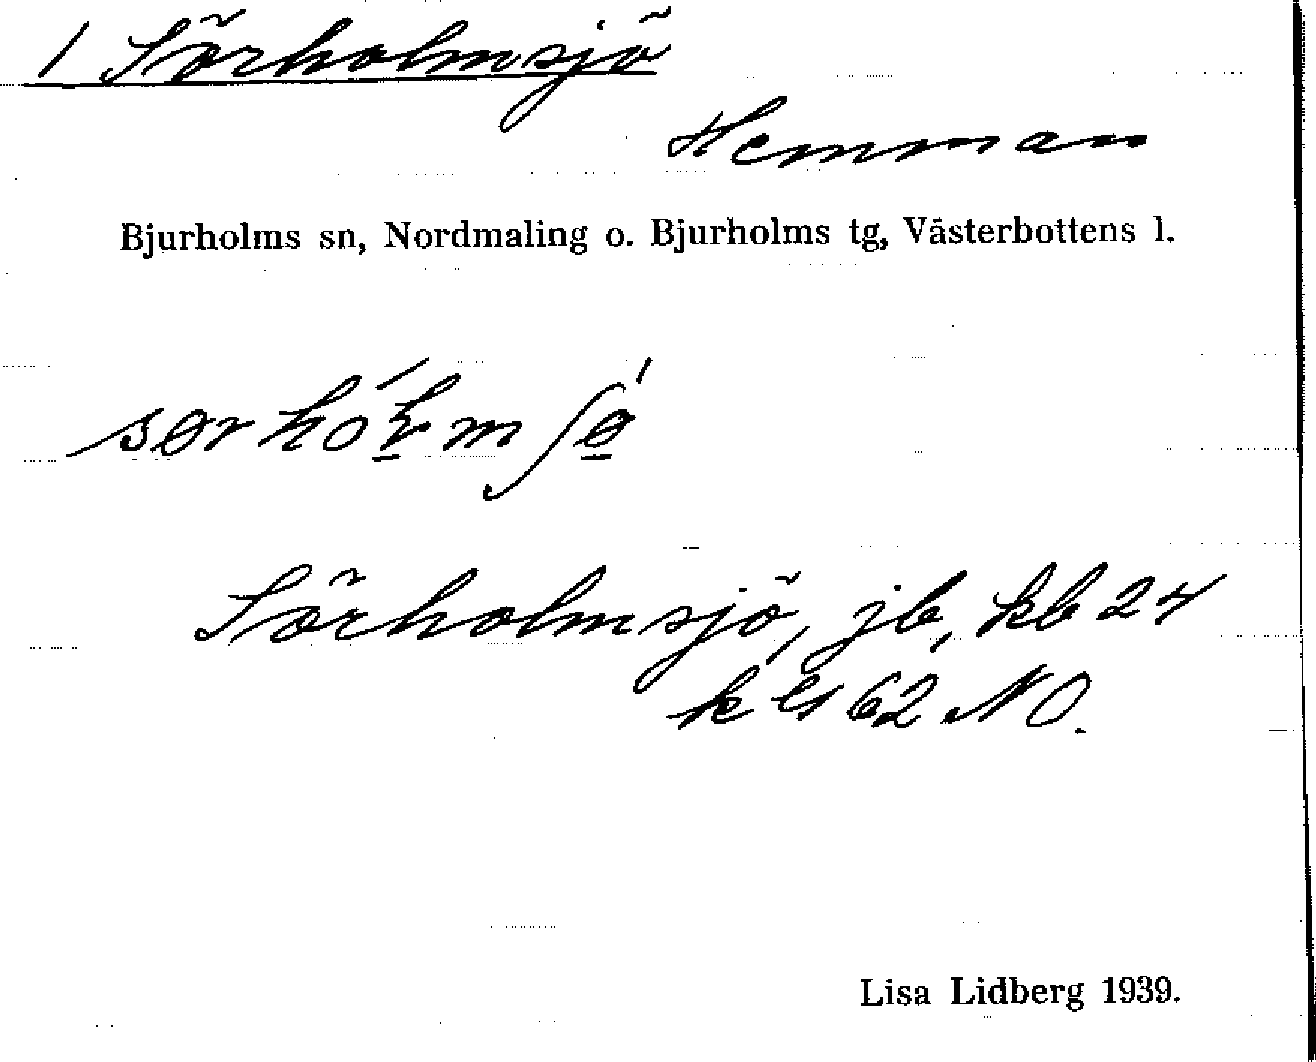 1 Sörholmsjö
Hemman
Bjurholms sn, Nordmaling o. Bjurholms tg, Västerbottens l.
Sörholmsjö, jb, kb 24
62 NO.
Lisa Lidberg 1939.